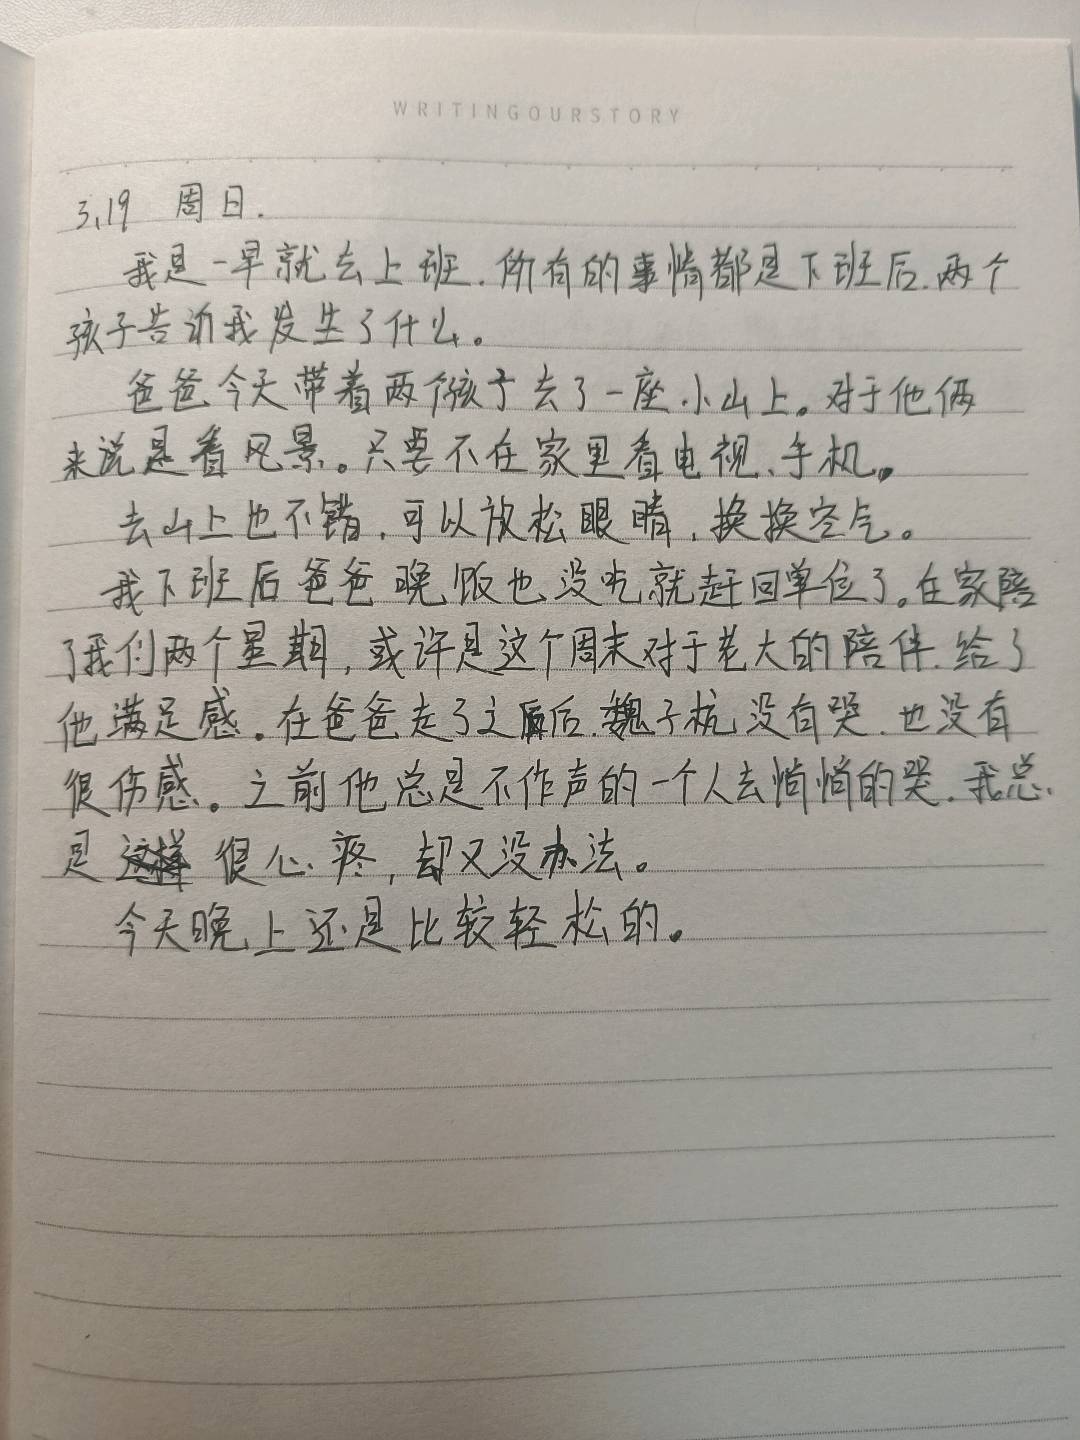 WRITINGOURSTORY
3.19 周日.
我是一早就去上班.所有的事情都是下班后.两个
孩子告诉我发生了什么。
爸爸今天带着两个孩子去了一座小山上。对于他俩
来说是看风景。只要不在家里看电视、手机。
去山上也不错,可以放松眼睛,换换空气。
我下班后爸爸晚饭也没吃就赶回单位了。在家陪
了我们两个星期,或许是这个周末对于老大的陪伴.给了
他满足感。在爸爸走了之后.魏子杭没有哭.也没有
很伤感。之前他总是不作声的一个人去悄悄的哭.我总
是很心疼,却又没办法。
今天晚上还是比较轻松的。